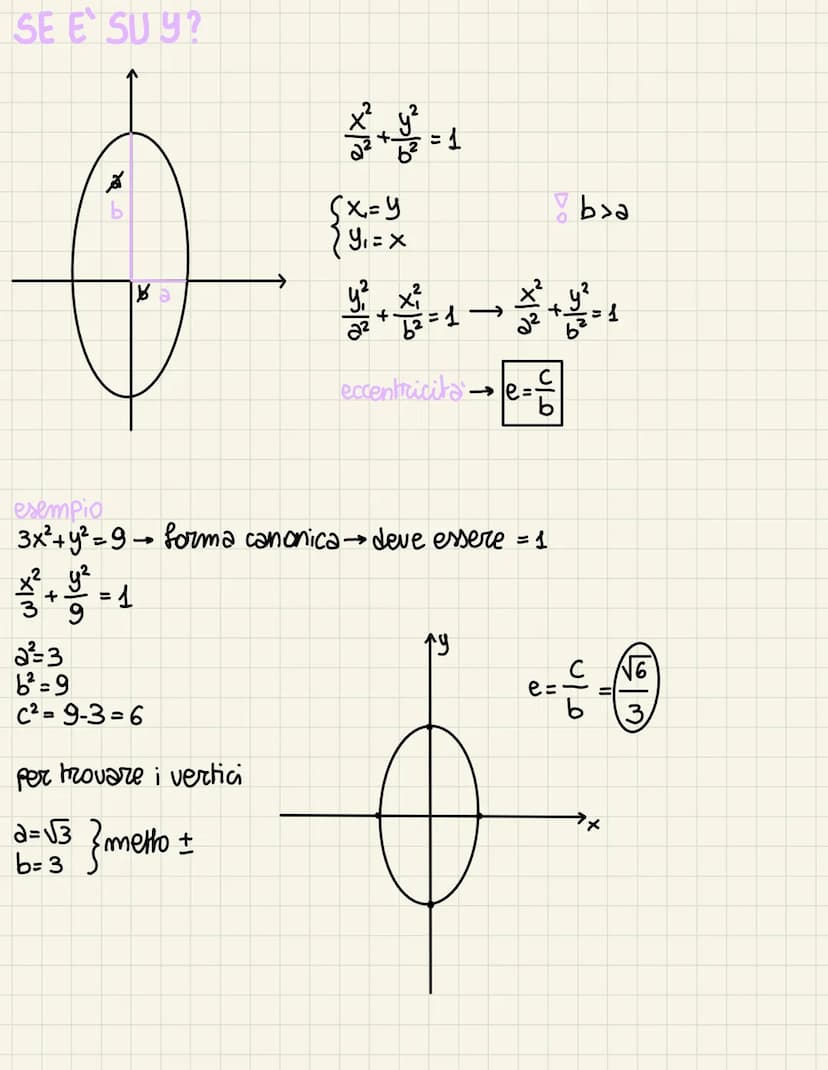 SE E' SU Y?
a
b
b a
x²/a² + y²/b² = 1
{x₁=y
{y₁=x
! b>a
y₁²/a² + x₁²/b² = 1 → x²/a² + y²/b² = 1
eccentricità → e = c/b
esempio
3x²+y²=9 → forma canonica → deve essere = 1
x²/3 + y²/9 = 1
a²=3
b²=9
c²= 9-3=6
y
e = c/b = √6/3
per trovare i vertici
x
a=√3 } metto ±
b=3